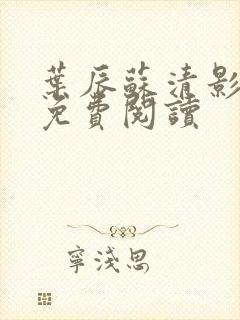 葉辰蘇清影
免費閱讀
寧淺思